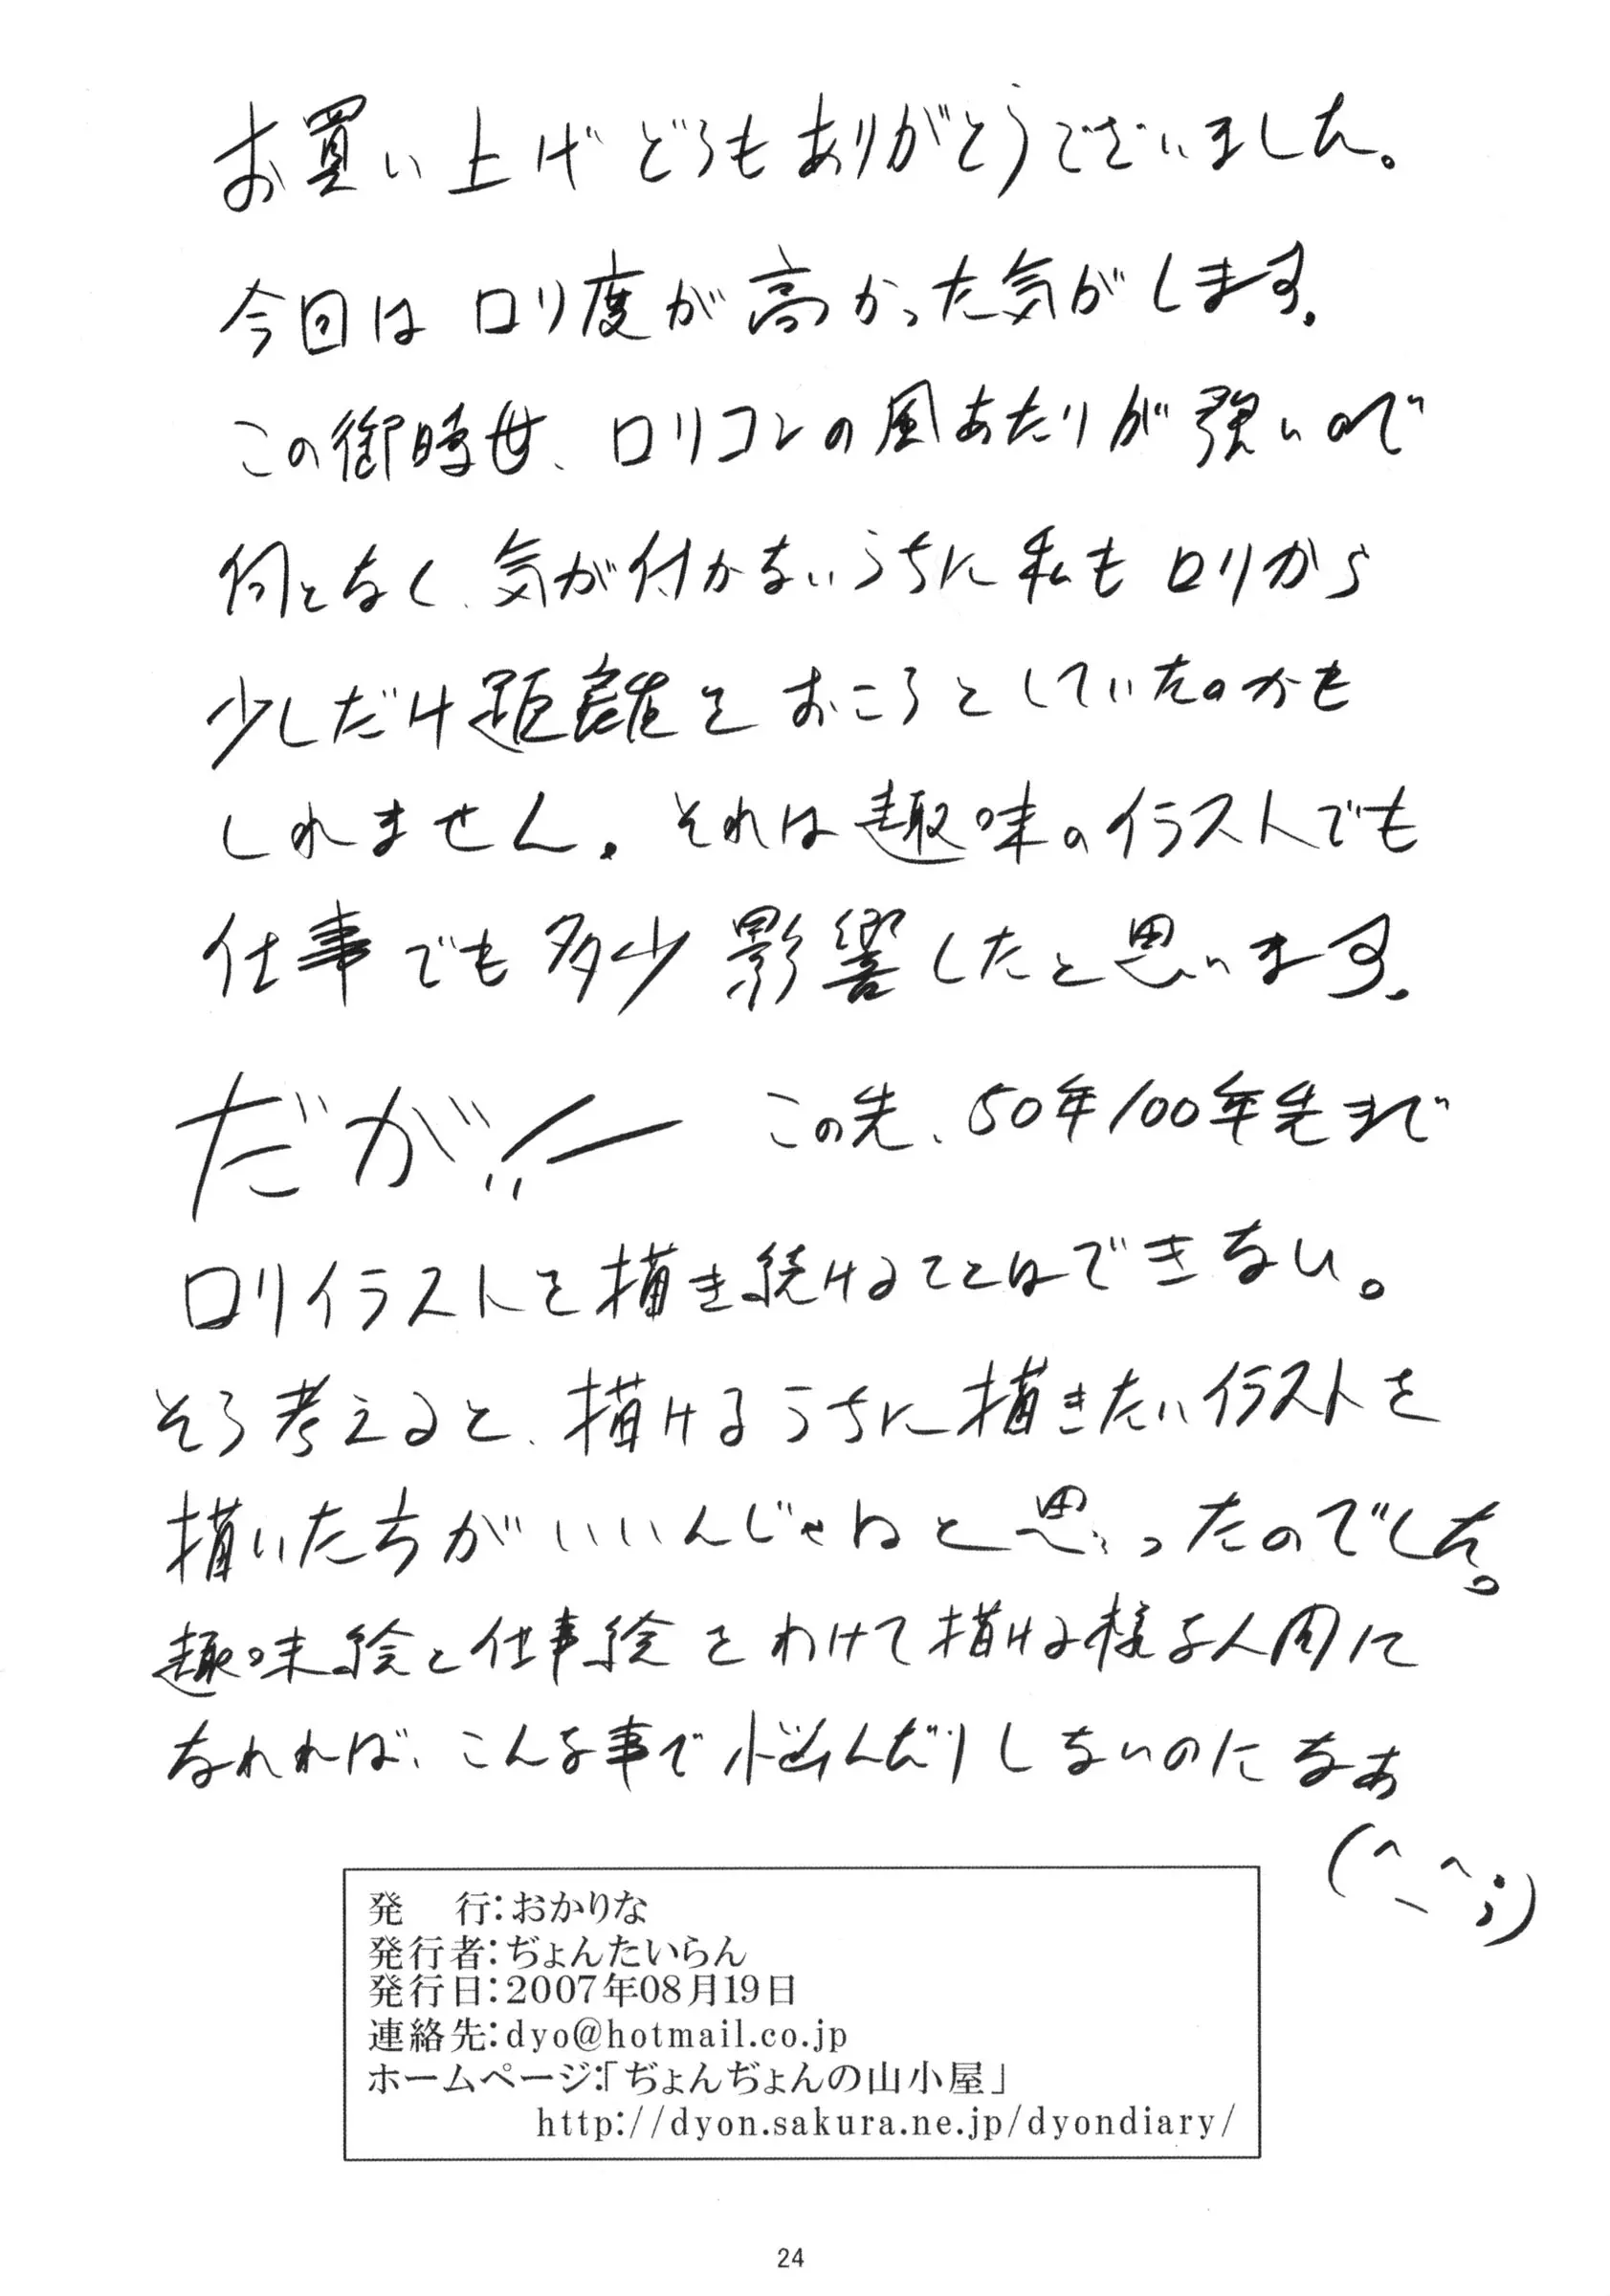 お買い上げどうもありがとうございました。
今回はロリ度が高かった気がします。
この御時世、ロリコンの風あたりが強いので
何となく、気が付かないうちに私もロリから
少しだけ距離をおこうとしていたのかも
しれません。それは趣味のイラストでも
仕事でも多少影響したと思います。
だが!! この先、50年100年先まで
ロリイラストを描き続けることはできない。
そう考えると、描けるうちに描きたいイラストを
描いたちがいいんじゃねと思ったのでした。
趣味絵と仕事絵をわけて描ける様な人間に
なれれば、こんな事で悩んだりしないのになぁ
(^_^;)
発 行:おかりな
発行者:ぢょんたいらん
発行日:2007年08月19日
24